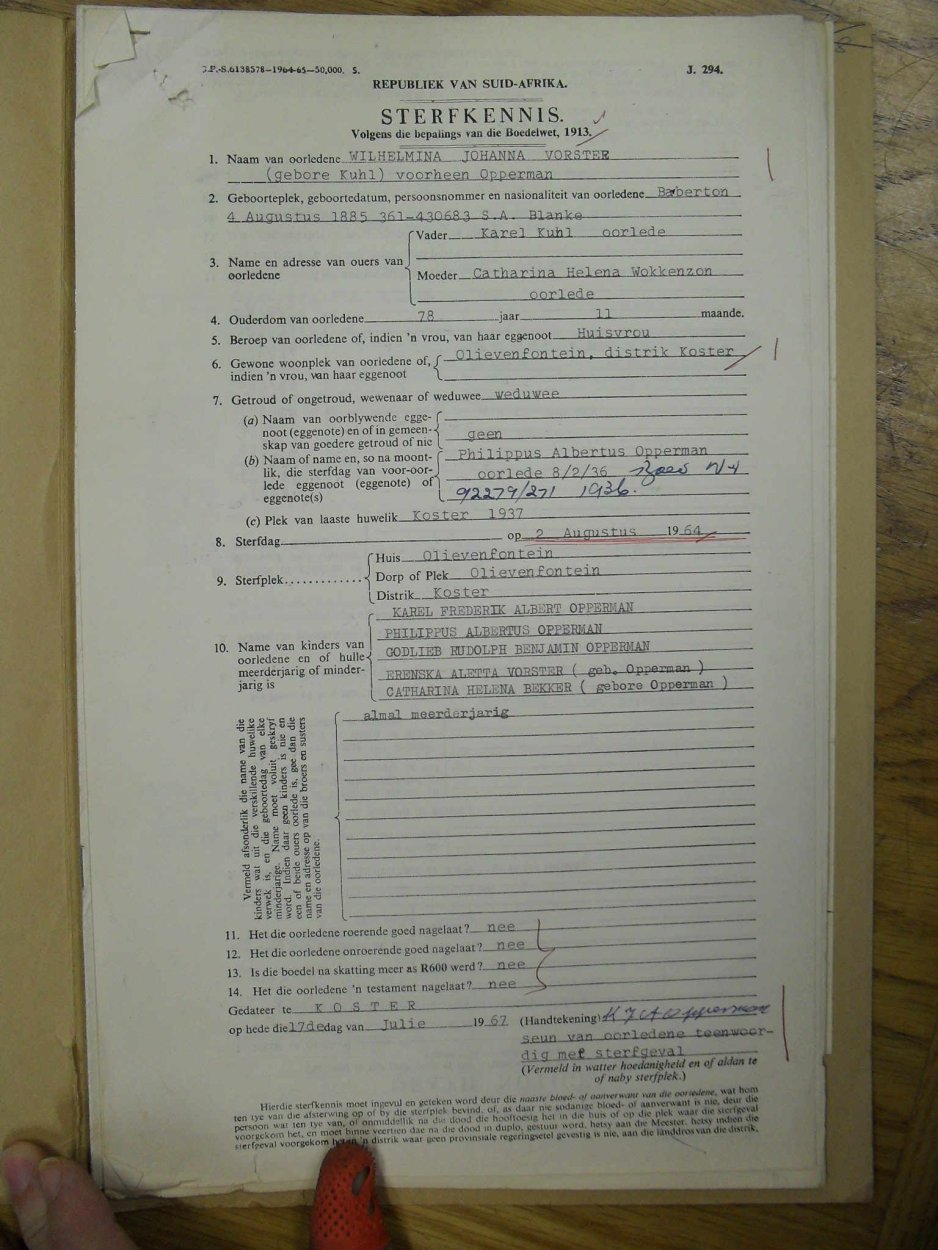 G.P.-S.6138578-1964-65-50,000. S. J. 294.
REPUBLIEK VAN SUID-AFRIKA.
STERFKENNIS.
Volgens die bepalings van die Boedelwet, 1913.
1. Naam van oorledene WILHELMINA JOHANNA VORSTER
(gebore Kuhl) voorheen Opperman
2. Geboorteplek, geboortedatum, persoonsnommer en nasionaliteit van oorledene Baberton
4 Augustus 1885 361-430683 S.A. Blanke
3. Name en adresse van ouers van oorledene
Vader Karel Kuhl oorlede
Moeder Catharina Helena Wokkenzon
oorlede
4. Ouderdom van oorledene 78 jaar 11 maande.
5. Beroep van oorledene of, indien 'n vrou, van haar eggenoot Huisvrou
6. Gewone woonplek van oorledene of, indien 'n vrou, van haar eggenoot
Olievenfontein, distrik Koster
7. Getroud of ongetroud, wewenaar of weduwee weduwee
(a) Naam van oorblywende egge-
noot (eggenote) en of in gemeen-
skap van goedere getroud of nie
geen
(b) Naam of name en, so na moont-
lik, die sterfdag van voor-oor-
lede eggenoot (eggenote) of
eggenote(s)
Philippus Albertus Opperman
oorlede 8/2/36
92279/271 1936.
(c) Plek van laaste huwelik Koster 1937
8. Sterfdag op 2 Augustus 1964
9. Sterfplek
Huis Olievenfontein
Dorp of Plek Olievenfontein
Distrik Koster
10. Name van kinders van
oorledene en of hulle
meerderjarig of minder-
jarig is
KAREL FREDERIK ALBERT OPPERMAN
PHILIPPUS ALBERTUS OPPERMAN
GODLIEB RUDOLPH BENJAMIN OPPERMAN
ERENSKA ALETTA VORSTER ( geb. Opperman )
CATHARINA HELENA BEKKER ( gebore Opperman )
almal meerderjarig
Vermeld afsonderlik die name van die
kinders wat uit die verskillende huwelike
verwek is, en die geboortedag van elke
minderjarige. Name moet voluit geskryf
word. Indien daar geen kinders is nie en
een of beide ouers oorlede is, gee dan die
name en adresse op van die broers en susters
van die oorledene.
11. Het die oorledene roerende goed nagelaat? nee
12. Het die oorledene onroerende goed nagelaat? nee
13. Is die boedel na skatting meer as R600 werd? nee
14. Het die oorledene 'n testament nagelaat? nee
Gedateer te K O S T E R
op hede die 17de dag van Julie 1967 (Handtekening) K F A Opperman
seun van oorledene teenwoor-
dig met sterfgeval
(Vermeld in watter hoedanigheid en of aldan te
of naby sterfplek.)
Hierdie sterfkennis moet ingevul en geteken word deur die naaste bloed- of aanverwant van die oorledene, wat hom
ten tye van die afsterwing op of by die sterfplek bevind, of, as daar nie sodanige bloed- of aanverwant is nie, deur die
persoon wat ten tye van, of onmiddellik na die dood die hooftoesig het in die huis of op die plek waar die sterfgeval
voorgekom het, en moet binne veertien dae na die dood in duplo, gestuur word, hetsy aan die Meester, hetsy indien die
sterfgeval voorgekom het in 'n distrik waar geen provinsiale regeringsetel gevestig is nie, aan die landdros van die distrik.